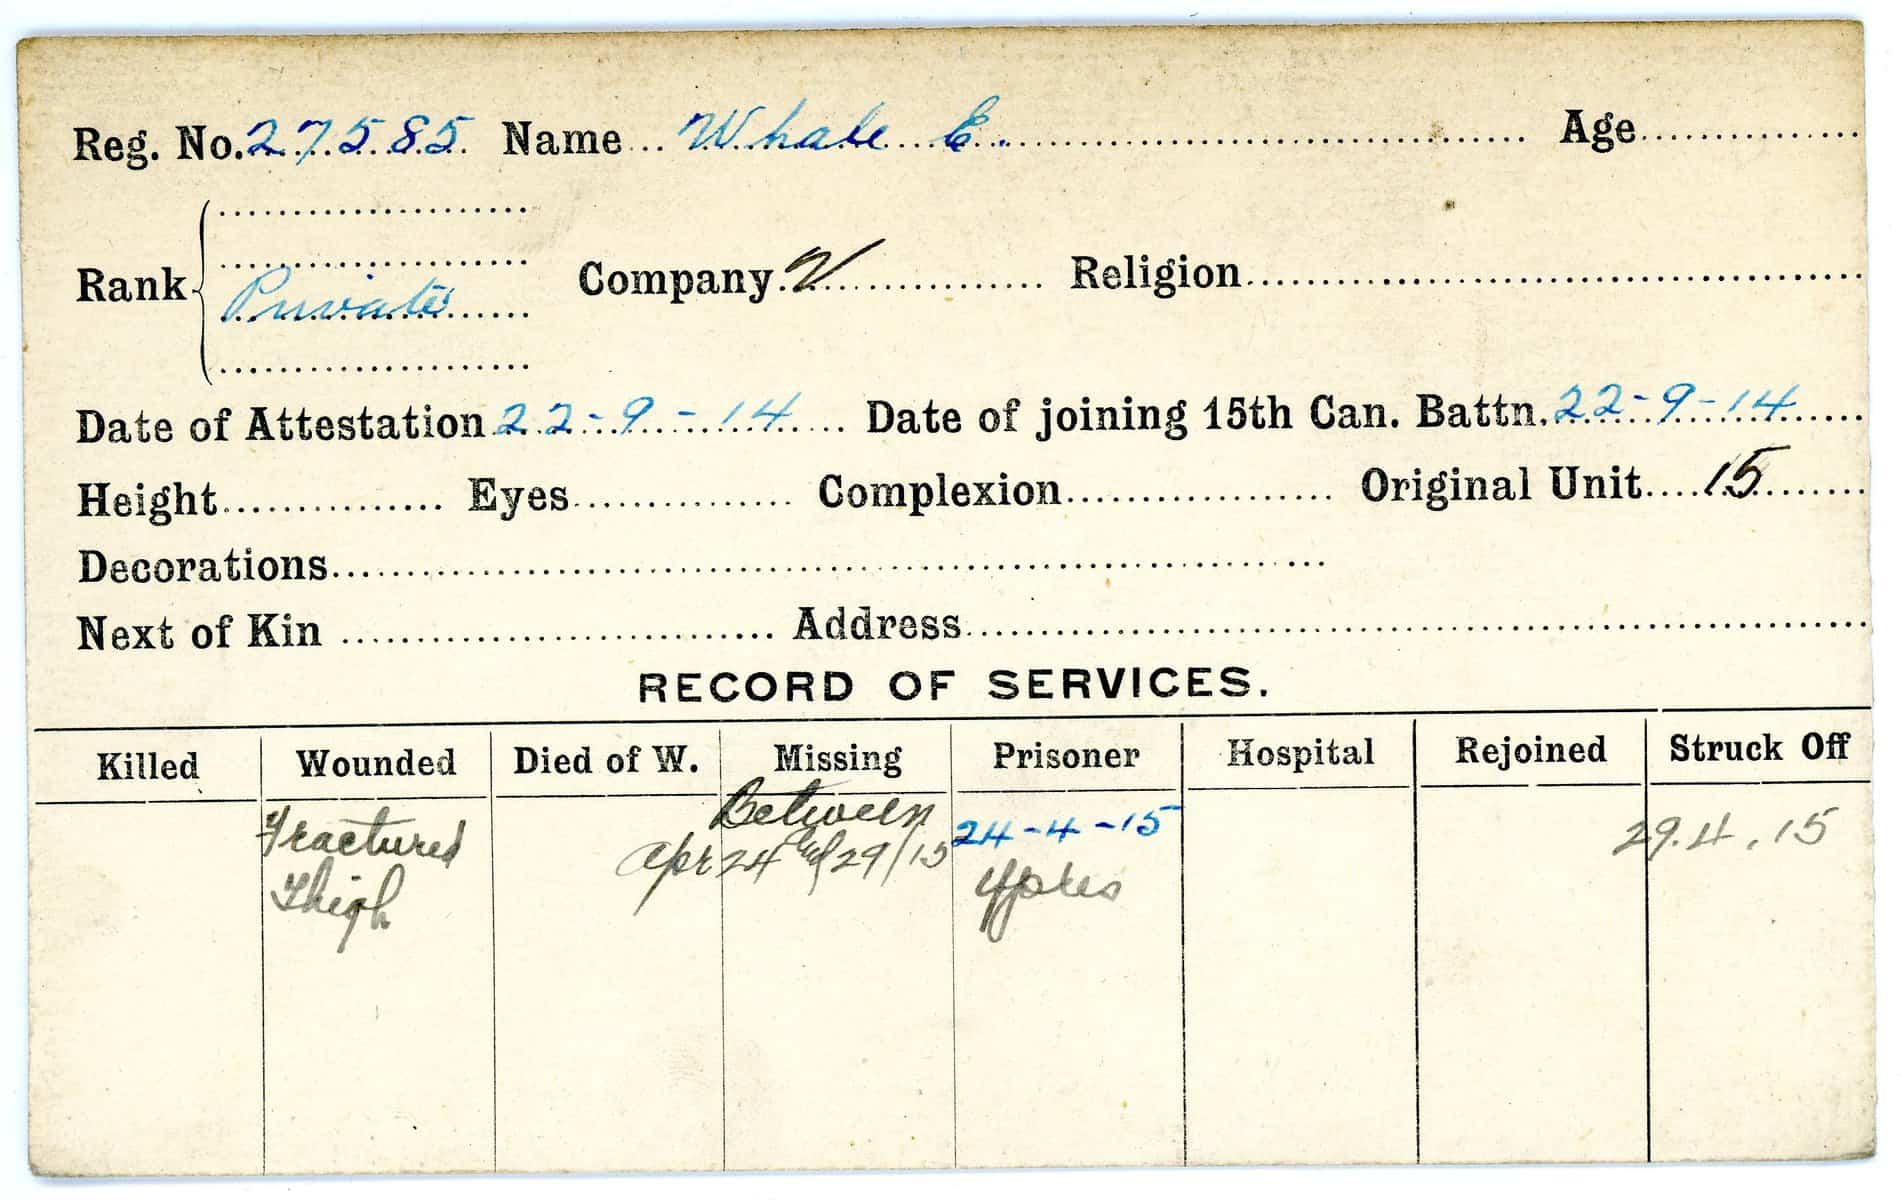 Reg. No. 27585 Name Whale E. Age
Rank Private Company 2 Religion
Date of Attestation 22-9-14 Date of joining 15th Can. Battn. 22-9-14
Height Eyes Complexion Original Unit 15
Decorations
Next of Kin Address
RECORD OF SERVICES.
Killed Wounded Died of W. Missing Prisoner Hospital Rejoined Struck Off
Fractured Between 24-4-15 29.4.15
Thigh Apr 24 and 29/15 Ypres